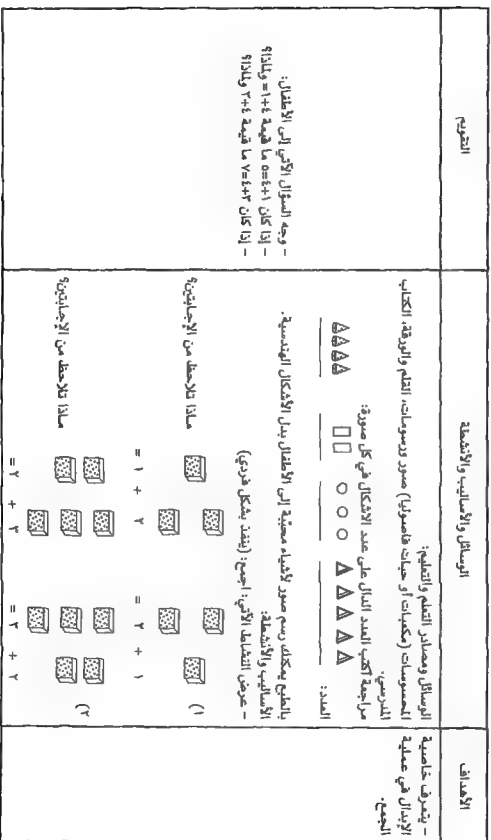 الأهداف
يتعرف خاصية
الإبدال في عملية
الجمع.
الوسائل والأساليب والأنشطة
الوسائل ومصادر التعلم والتعليم:
المحسوسات (مكعبات أو حبات فاصوليا) صور ورسومات، القلم والورقة، الكتاب
المدرسي.
مراجعة أكتب العدد الدال على عدد الاشكال في كل صورة:
العدد:
بالطبع يمكنك رسم صور لأشياء محببة إلى الأطفال بدل الأشكال الهندسية.
الأساليب والأنشطة:
- عرض النشاط الآتي: اجمع: (ينفذ بشكل فردي)
١)
١ + ٢ =
٢ + ١ =
ماذا تلاحظ من الإجابتين؟
٢)
٢ + ٣ =
٣ + ٢ =
ماذا تلاحظ من الإجابتين؟
التقويم
- وجه السؤال الآتي إلى الأطفال:
- إذا كان ١+٤=٥ ما قيمة ٤+١= ولماذا؟
- إذا كان ٣+٤=٧ ما قيمة ٤+٣ ولماذا؟